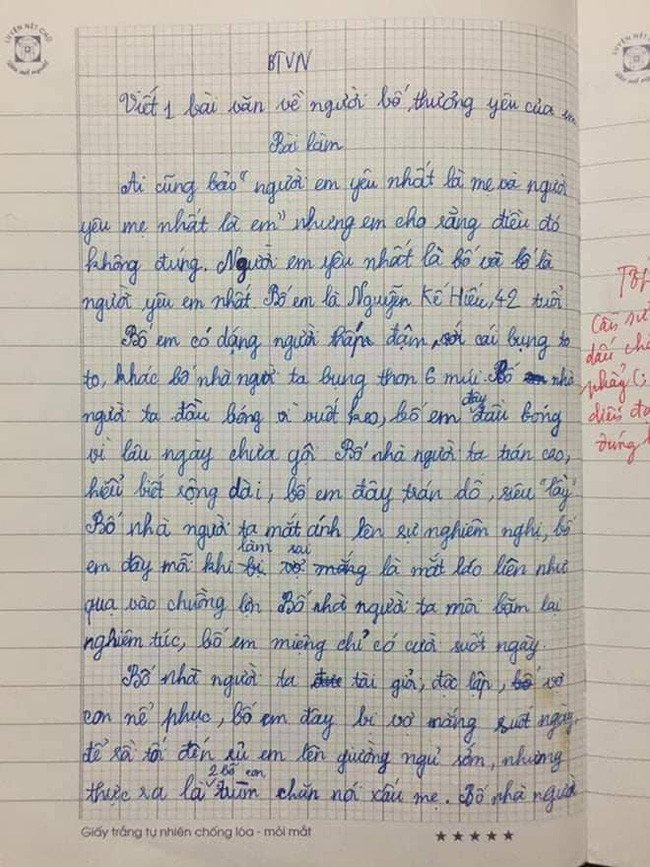 LUYỆN NÉT CHỮ
BTVN
Viết 1 bài văn về người bố thương yêu của em
Bài làm
Ai cũng bảo "người em yêu nhất là mẹ và người
yêu mẹ nhất là em" nhưng em cho rằng điều đó
không đúng. Người em yêu nhất là bố và bố là
người yêu em nhất. Bố em là Nguyễn Kế Hiếu, 42 tuổi
Bố em có dáng người thấp đậm, với cái bụng to
to, khác bố nhà người ta bụng thon 6 múi. Bố nhà
người ta đầu bóng vì vuốt keo, bố em đây đầu bóng
vì lâu ngày chưa gội. Bố nhà người ta trán cao,
hiểu biết rộng dài, bố em đây trán dô, siêu "lầy"
Bố nhà người ta mắt ánh lên sự nghiêm nghị, bố
em đây mỗi khi làm sai là mắt láo liên như
qua vào chuồng lợn Bố nhà người ta môi bặm lại
nghiêm túc, bố em miệng chỉ có cười suốt ngày.
Bố nhà người ta tài giỏi, độc lập, vợ
con nể phục, bố em đây bị vợ mắng suốt ngày,
để rồi tối đến rủ em lên giường ngủ sớm, nhưng
thực ra là 2 bố con trùm chăn nói xấu mẹ. Bố nhà người
Giấy trắng tự nhiên chống lóa - mỏi mắt
★★★★★
Cần sử
dấu chấ
phẩy (;
diễn đạ
đúng